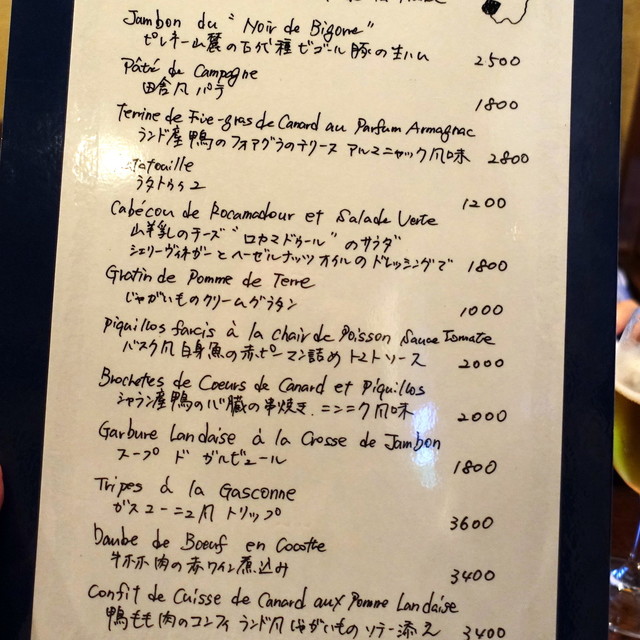 Jambon du "Noir de Bigorre"
ピレネー山麓の古代種ビゴール豚の生ハム 2500
Pâté de Campagne
田舎風パテ 1800
Terrine de Foie-gras de Canard au Parfum Armagnac
ランド産鴨のフォアグラのテリース アルマニャック風味 2800
tatouille
ラタトゥイユ 1200
Cabécou de Rocamadour et Salade Verte
山羊乳のチーズ"ロカマドゥール"のサラダ
シェリーヴィネガーとヘーゼルナッツオイルのドレッシングで 1800
Gratin de Pomme de Terre
じゃがいものクリームグラタン 1000
Piquillos farcis à la chair de Poisson Sauce Tomate
バスク風白身魚の赤ピーマン詰め トマトソース 2000
Brochetes de Coeurs de Canard et Piquillos
シャラン産鴨の心臓の串焼き.ニンニク風味 2000
Garbure Landaise à la Crosse de Jambon
スープ ド ガルビュール 1800
Tripes à la Gasconne
ガスコーニュ風 トリップ 3600
Daube de Boeuf en Cocotte
牛ホホ肉の赤ワイン煮込み 3400
Confit de Cuisse de Canard aux Pomme Landaise
鴨もも肉のコンフィ ランド風じゃがいものソテー添え 3400